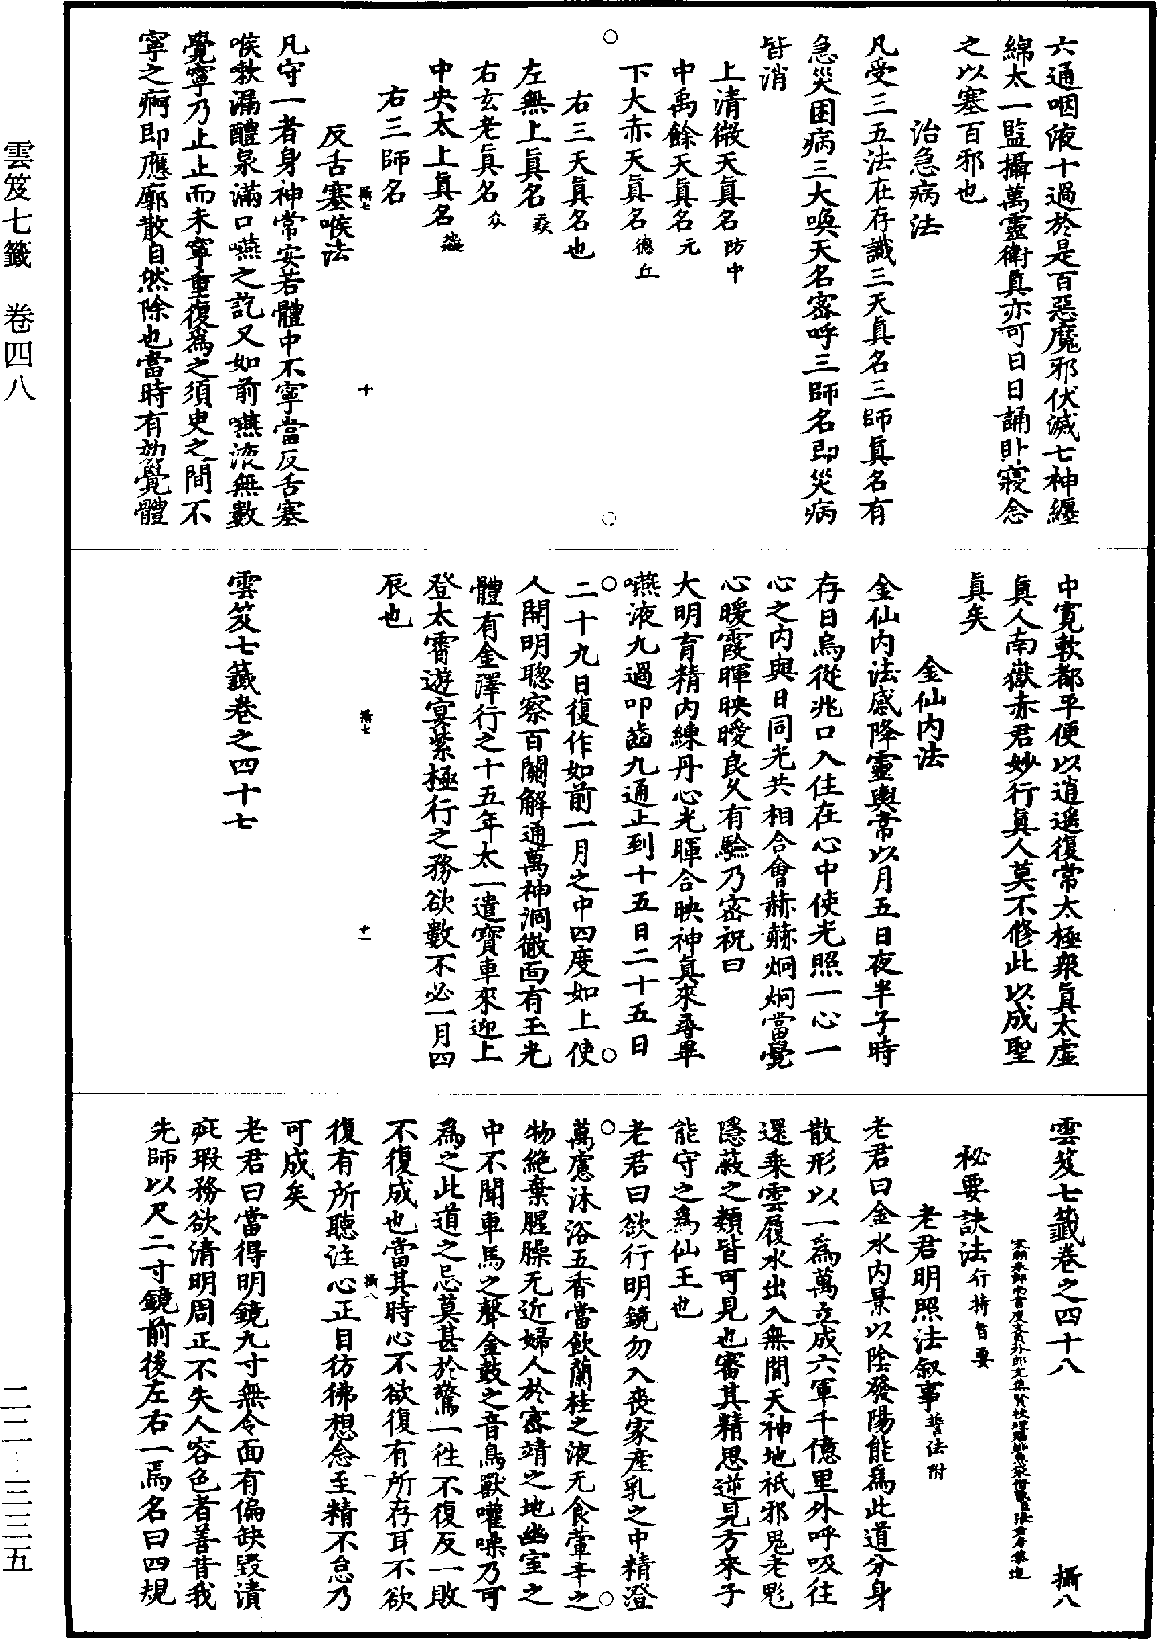 雲笈七籤　卷四八
六通咽液十過於是百惡魔邪伏滅七神纏
綿太一監攝萬靈衛真亦可日日誦卧寢念
之以塞百邪也
治急病法
凡受三五法在存識三天真名三師真名有
急災困病三大喚天名密呼三師名即災病
皆消
上清微天真名防中
中禹餘天真名元
下大赤天真名德丘
右三天真名也
左無上真名
右玄老真名
中央太上真名
右三師名
攝七
十
反舌塞喉法
凡守一者身神常安若體中不寧當反舌塞
喉漱漏醴泉滿口嚥之訖又如前嚥液無數
覺寧乃止止而未寧重復為之須臾之間不
寧之痾即應廓散自然除也當時有効覺體
中寬軟都平便以逍遙復常太極衆真太虛
真人南嶽赤君妙行真人莫不修此以成聖
真矣
金仙内法
金仙内法感降靈輿常以月五日夜半子時
存日烏從兆口入住在心中使光照一心一
心之内與日同光共相合會赫赫炯炯當覺
心暖霞暉映曖良久有驗乃密祝曰
大明育精内練丹心光暉合映神真來尋畢
嚥液九過叩齒九通止到十五日二十五日
二十九日復作如前一月之中四度如上使
人開明聰察百關解通萬神洞徹面有玉光
體有金澤行之十五年太一遣寶車來迎上
登太霄遊宴紫極行之務欲數不必一月四
辰也
攝七
十一
雲笈七籤卷之四十七
雲笈七籤卷之四十八　攝八
秘要訣法行持旨要
老君明照法叙事誓法附
老君曰金水内景以陰發陽能為此道分身
散形以一為萬立成六軍千億里外呼吸往
還乘雲履水出入無間天神地祇邪鬼老魅
隱蔽之類皆可見也審其精思逆見方來子
能守之為仙王也
老君曰欲行明鏡勿入喪家產乳之中精澄
萬慮沐浴五香當飲蘭桂之液无食葷辛之
物絶棄腥臊无近婦人於密靖之地幽室之
中不聞車馬之聲金鼓之音鳥獸嚾噪乃可
為之此道之忌莫甚於驚一往不復反一敗
不復成也當其時心不欲復有所存耳不欲
攝八
一
復有所聽注心正目彷彿想念至精不怠乃
可成矣
老君曰當得明鏡九寸無令面有偏缺毀漬
疵瑕務欲清明周正不失人容色者善昔我
先師以尺二寸鏡前後左右一焉名曰四規
二二—三三五